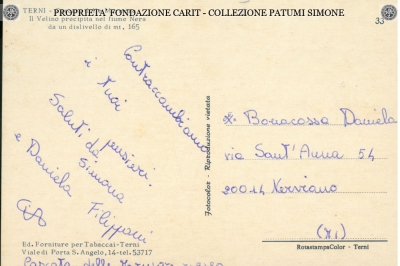 PROPRIETA' FONDAZIONE CARIT - COLLEZIONE PATUMI SIMONE
33
TERNI -
Il Velino precipita nel fiume Nera
da un dislivello di mt. 165
Contraccambiamo
i tuoi pensieri.
Saluti da Simona Filippani
e Daniela
Ciao
Fotocolor - Riproduzione vietata
Bonacossa Daniela
via Sant'Anna 54
20014 Nerviano
(MI)
Ed. Forniture per Tabaccai-Terni
Viale di Porta S. Angelo, 14-tel. 53717
RotastampaColor - Terni
Cascata delle